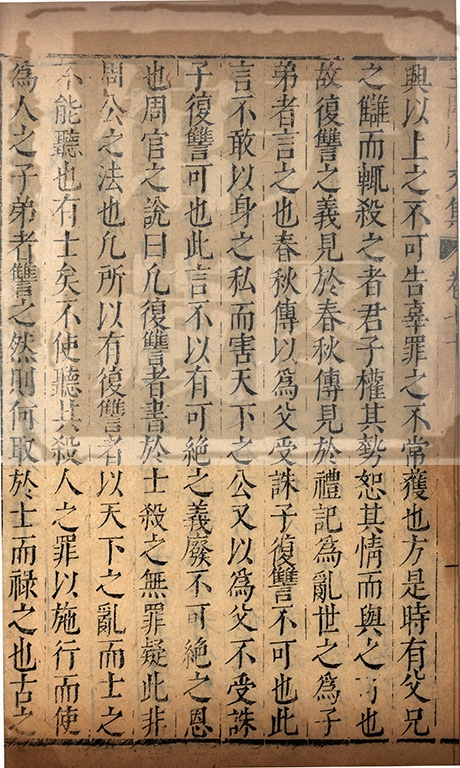 文集 卷七十
興以上之不可告辜罪之不常獲也方是時有父兄
之讎而輒殺之者君子權其勢恕其情而與之可也
故復讐之義見於春秋傳見於禮記為亂世之為子
弟者言之也春秋傳以為父受誅子復讐不可也此
言不敢以身之私而害天下之公又以為父不受誅
子復讐可也此言不以有可絶之義廢不可絶之恩
也周官之說曰凡復讐者書於士殺之無罪疑此非
周公之法也凡所以有復讐者以天下之亂而士之
不能聽也有士矣不使聽其殺人之罪以施行而使
為人之子弟者讐之然則何取於士而祿之也古之